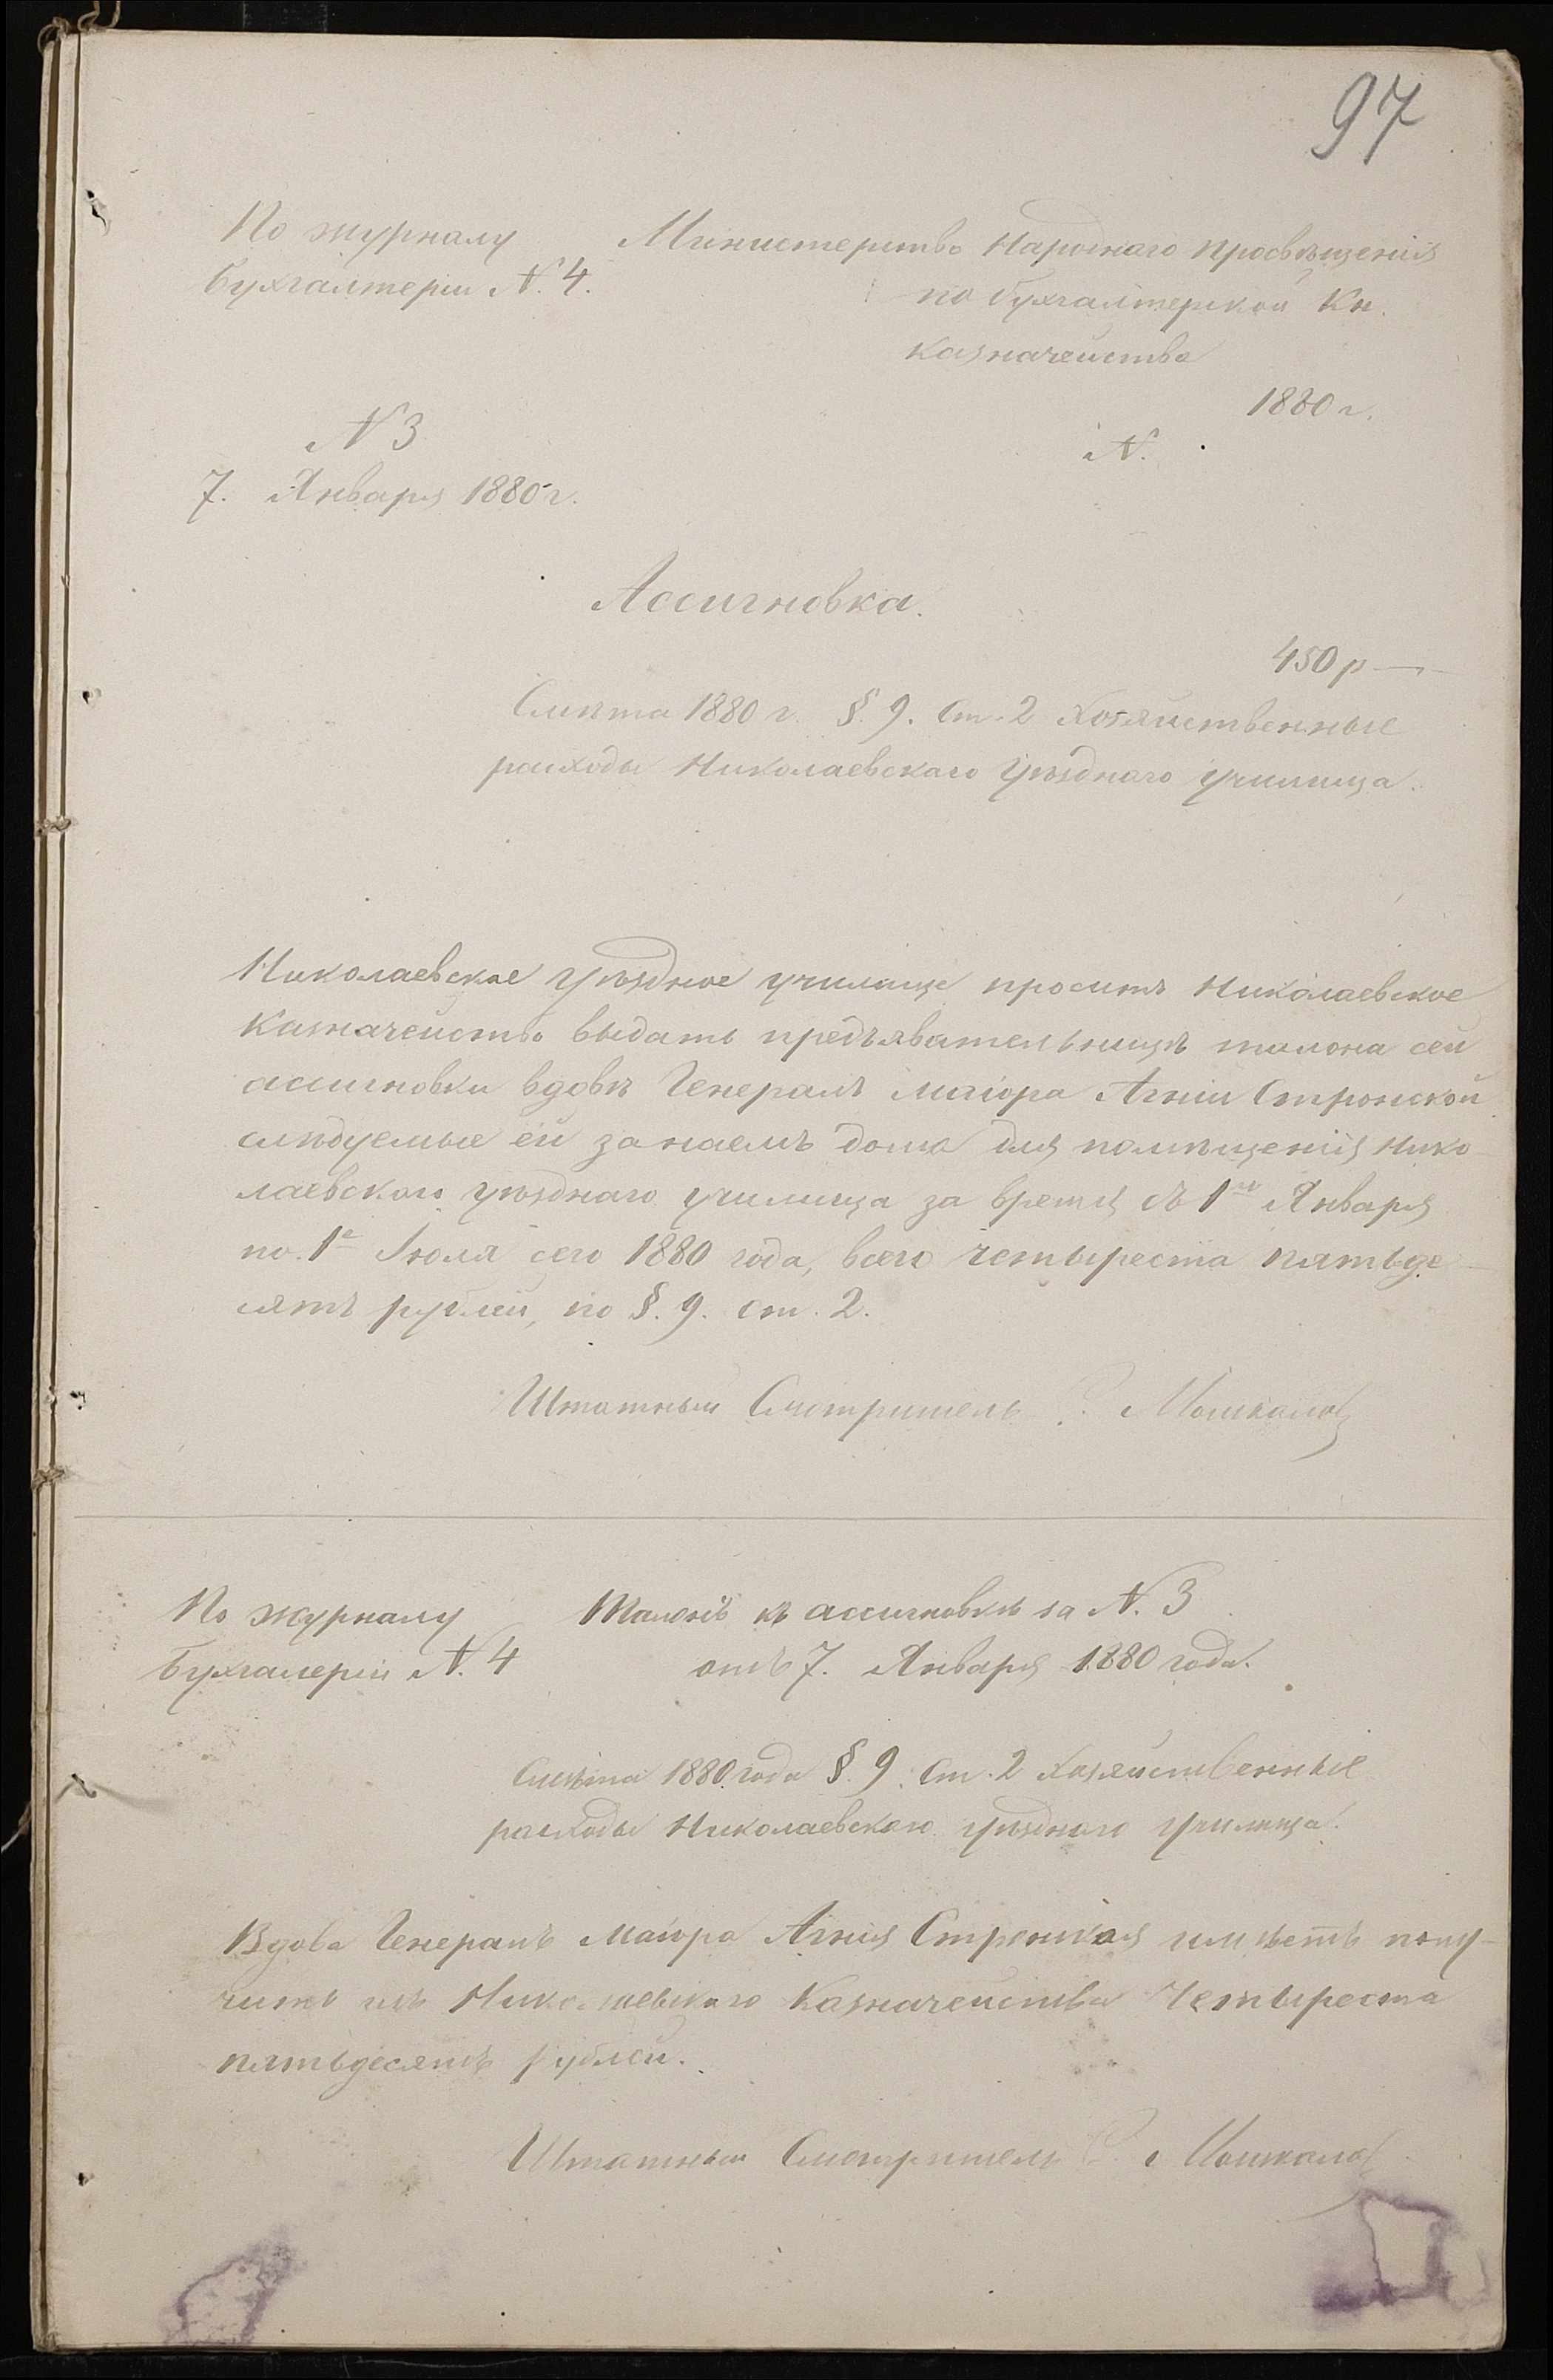 97
По журналу
бухгалтеріи N. 4.
Министерство Народнаго просвѣщенія
по бухгалтерской Кн.
казначейства
1880 г.
N.
N 3
7. Января 1880 г.
Ассигновка.
450 р —
Смѣта 1880 г. §. 9. ст. 2 Хозяйственные
расходы Николаевскаго Уѣзднаго училища.
Николаевское уѣздное училище проситъ Николаевское
Казначейство выдать предъявательницѣ талона сей
ассигновки вдовѣ Генералъ Маіора Агніи Стронской
слѣдуемые ей за наемъ дома для помѣщенія Нико-
лаевскаго уѣзднаго училища за время съ 1го Января
по 1е Іюля сего 1880 года, всего четыреста пятьде-
сятъ рублей, по §. 9. ст. 2.
Штатный Смотритель Мошкалов
По журналу
бухгалеріи N. 4
Талонъ къ ассигновкѣ за N. 3
отъ 7. Января 1880 года.
Смѣта 1880 года §. 9. ст. 2 Хозяйственные
расходы Николаевскаго уѣзднаго училища.
Вдова Генералъ Маіора Агнія Стронская имѣетъ полу-
чить изъ Николаевскаго Казначейства Четыреста
пятьдесятъ рублей.
Штатный Смотритель Мошкалов